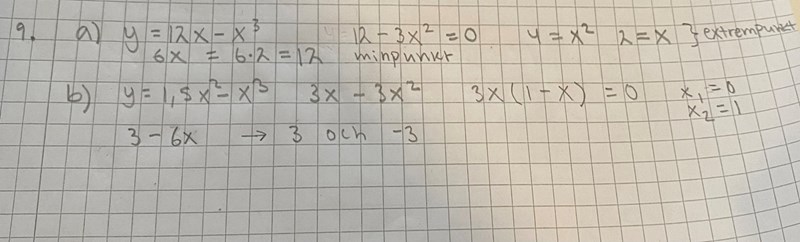 9. a) y = 12x - x³ 12 - 3x² = 0 4 = x² 2 = x } extrempunkt
6x = 6·2 = 12 minpunkt
b) y = 1,5x² - x³ 3x - 3x² 3x(1-x) = 0 x₁ = 0
x₂ = 1
3 - 6x → 3 och -3